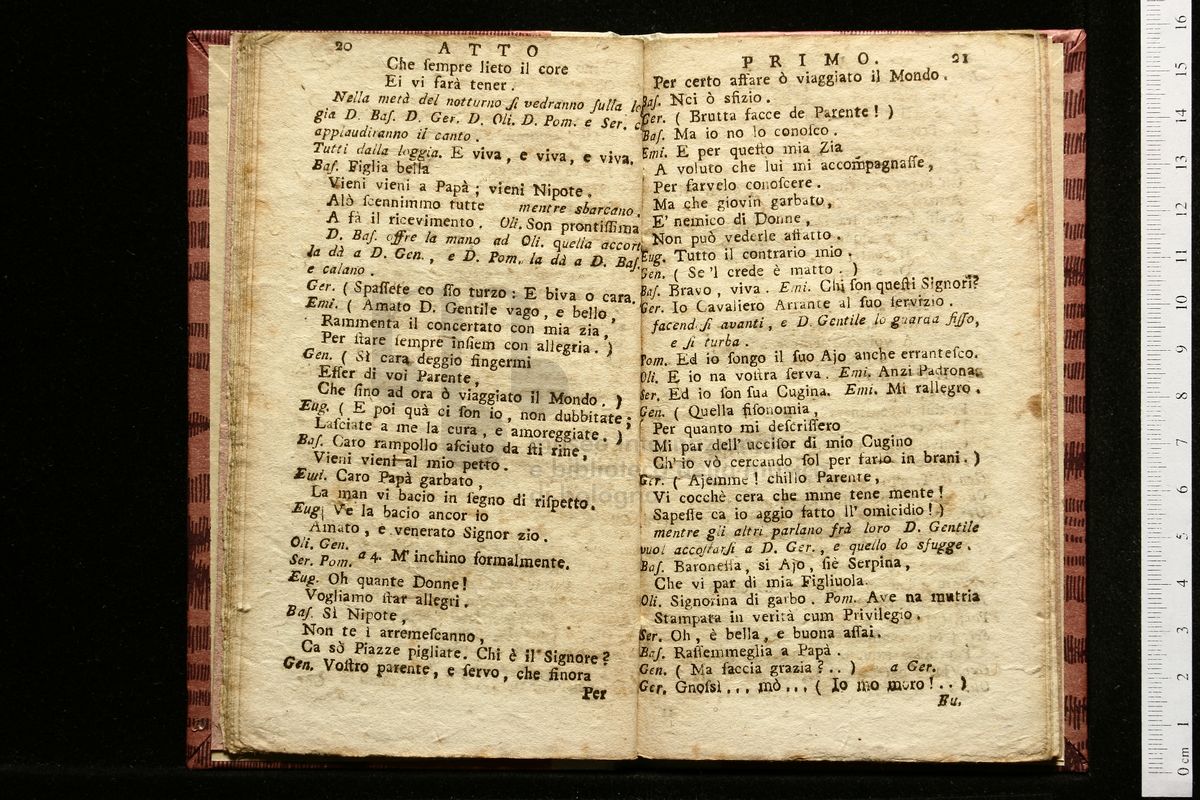 20 ATTO
Che ſempre lieto il core
Ei vi farà tener.
Nella metà del notturno ſi vedranno ſulla
gia D. Baſ. D. Ger. D. Oli. D. Pom. e Ser.
applaudiranno il canto.
Tutti dalla loggia. E viva, e viva, e viva.
Baſ. Figlia bella
Vieni vieni a Papà; vieni Nipote.
Alò ſcennimmo tutte mentre sbarcano.
A fà il ricevimento. Oli. Son prontiſſima
D. Baſ. offre la mano ad Oli. quella
la dà a D. Gen., e D. Pom. la dà a D. Baſ.
e calano.
Ger. (Spaſſete co ſſo turzo: E biva o cara.
Emi. (Amato D. Gentile vago, e bello,
Rammenta il concertato con mia zia,
Per ſtare ſempre inſiem con allegria.)
Gen. (Sì cara deggio fingermi
Eſſer di voi Parente,
Che ſino ad ora ò viaggiato il Mondo.)
Eug. (E poi quà ci ſon io, non dubbitate;
Laſciate a me la cura, e amoreggiate.)
Baſ. Caro rampollo aſciuto da ſti rine,
Vieni vieni al mio petto.
Emi. Caro Papà garbato,
La man vi bacio in ſegno di riſpetto.
Eug. Ve la bacio ancor io
Amato, e venerato Signor zio.
Oli. Gen.
Ser. Pom. a 4. M' inchino formalmente.
Eug. Oh quante Donne!
Vogliamo ſtar allegri.
Baſ. Sì Nipote,
Non te i arremeſcanno,
Ca sò Piazze pigliate. Chi è il Signore?
Gen. Voſtro parente, e ſervo, che finora
Per
PRIMO. 21
Per certo affare ò viaggiato il Mondo.
Baſ. Nci ò sfizio.
Ger. (Brutta facce de Parente!)
Baſ. Ma io no lo conoſco.
Emi. E per queſto mia Zia
A voluto che lui mi accom̃pagnaſſe,
Per farvelo conoſcere.
Ma che giovin garbato,
E' nemico di Donne,
Non può vederle affatto.
Eug. Tutto il contrario mio.
Gen. (Se 'l crede è matto.)
Baſ. Bravo, viva. Emi. Chi ſon queſti Signori?
Ger. Io Cavaliero Arrante al ſuo ſervizio.
facendoſi avanti, e D. Gentile lo guarda fiſſo,
e ſi turba.
Pom. Ed io ſongo il ſuo Ajo anche erranteſco.
Oli. E io na voſtra ſerva. Emi. Anzi Padrona.
Ser. Ed io ſon ſua Cugina. Emi. Mi rallegro.
Gen. (Quella fiſonomia,
Per quanto mi deſcriſſero
Mi par dell' ucciſor di mio Cugino
Ch' io vò cercando ſol per farlo in brani.)
Ger. (Ajemme! chillo Parente,
Vi cocchè cera che mme tene mente!
Sapeſſe ca io aggio fatto ll' omicidio!)
mentre gli altri parlano frà loro D. Gentile
vuol accoſtarſi a D. Ger., e quello lo sfugge.
Baſ. Baroneſſa, si Ajo, ſiè Serpina,
Che vi par di mia Figliuola.
Oli. Signorina di garbo. Pom. Ave na mutria
Stampata in verità cum Privilegio.
Ser. Oh, è bella, e buona aſſai.
Baſ. Raſſemmeglia a Papà.
Gen. (Ma faccia grazia?..) a Ger.
Ger. Gnorsì... mò... (Io mo moro!..)
Bu.